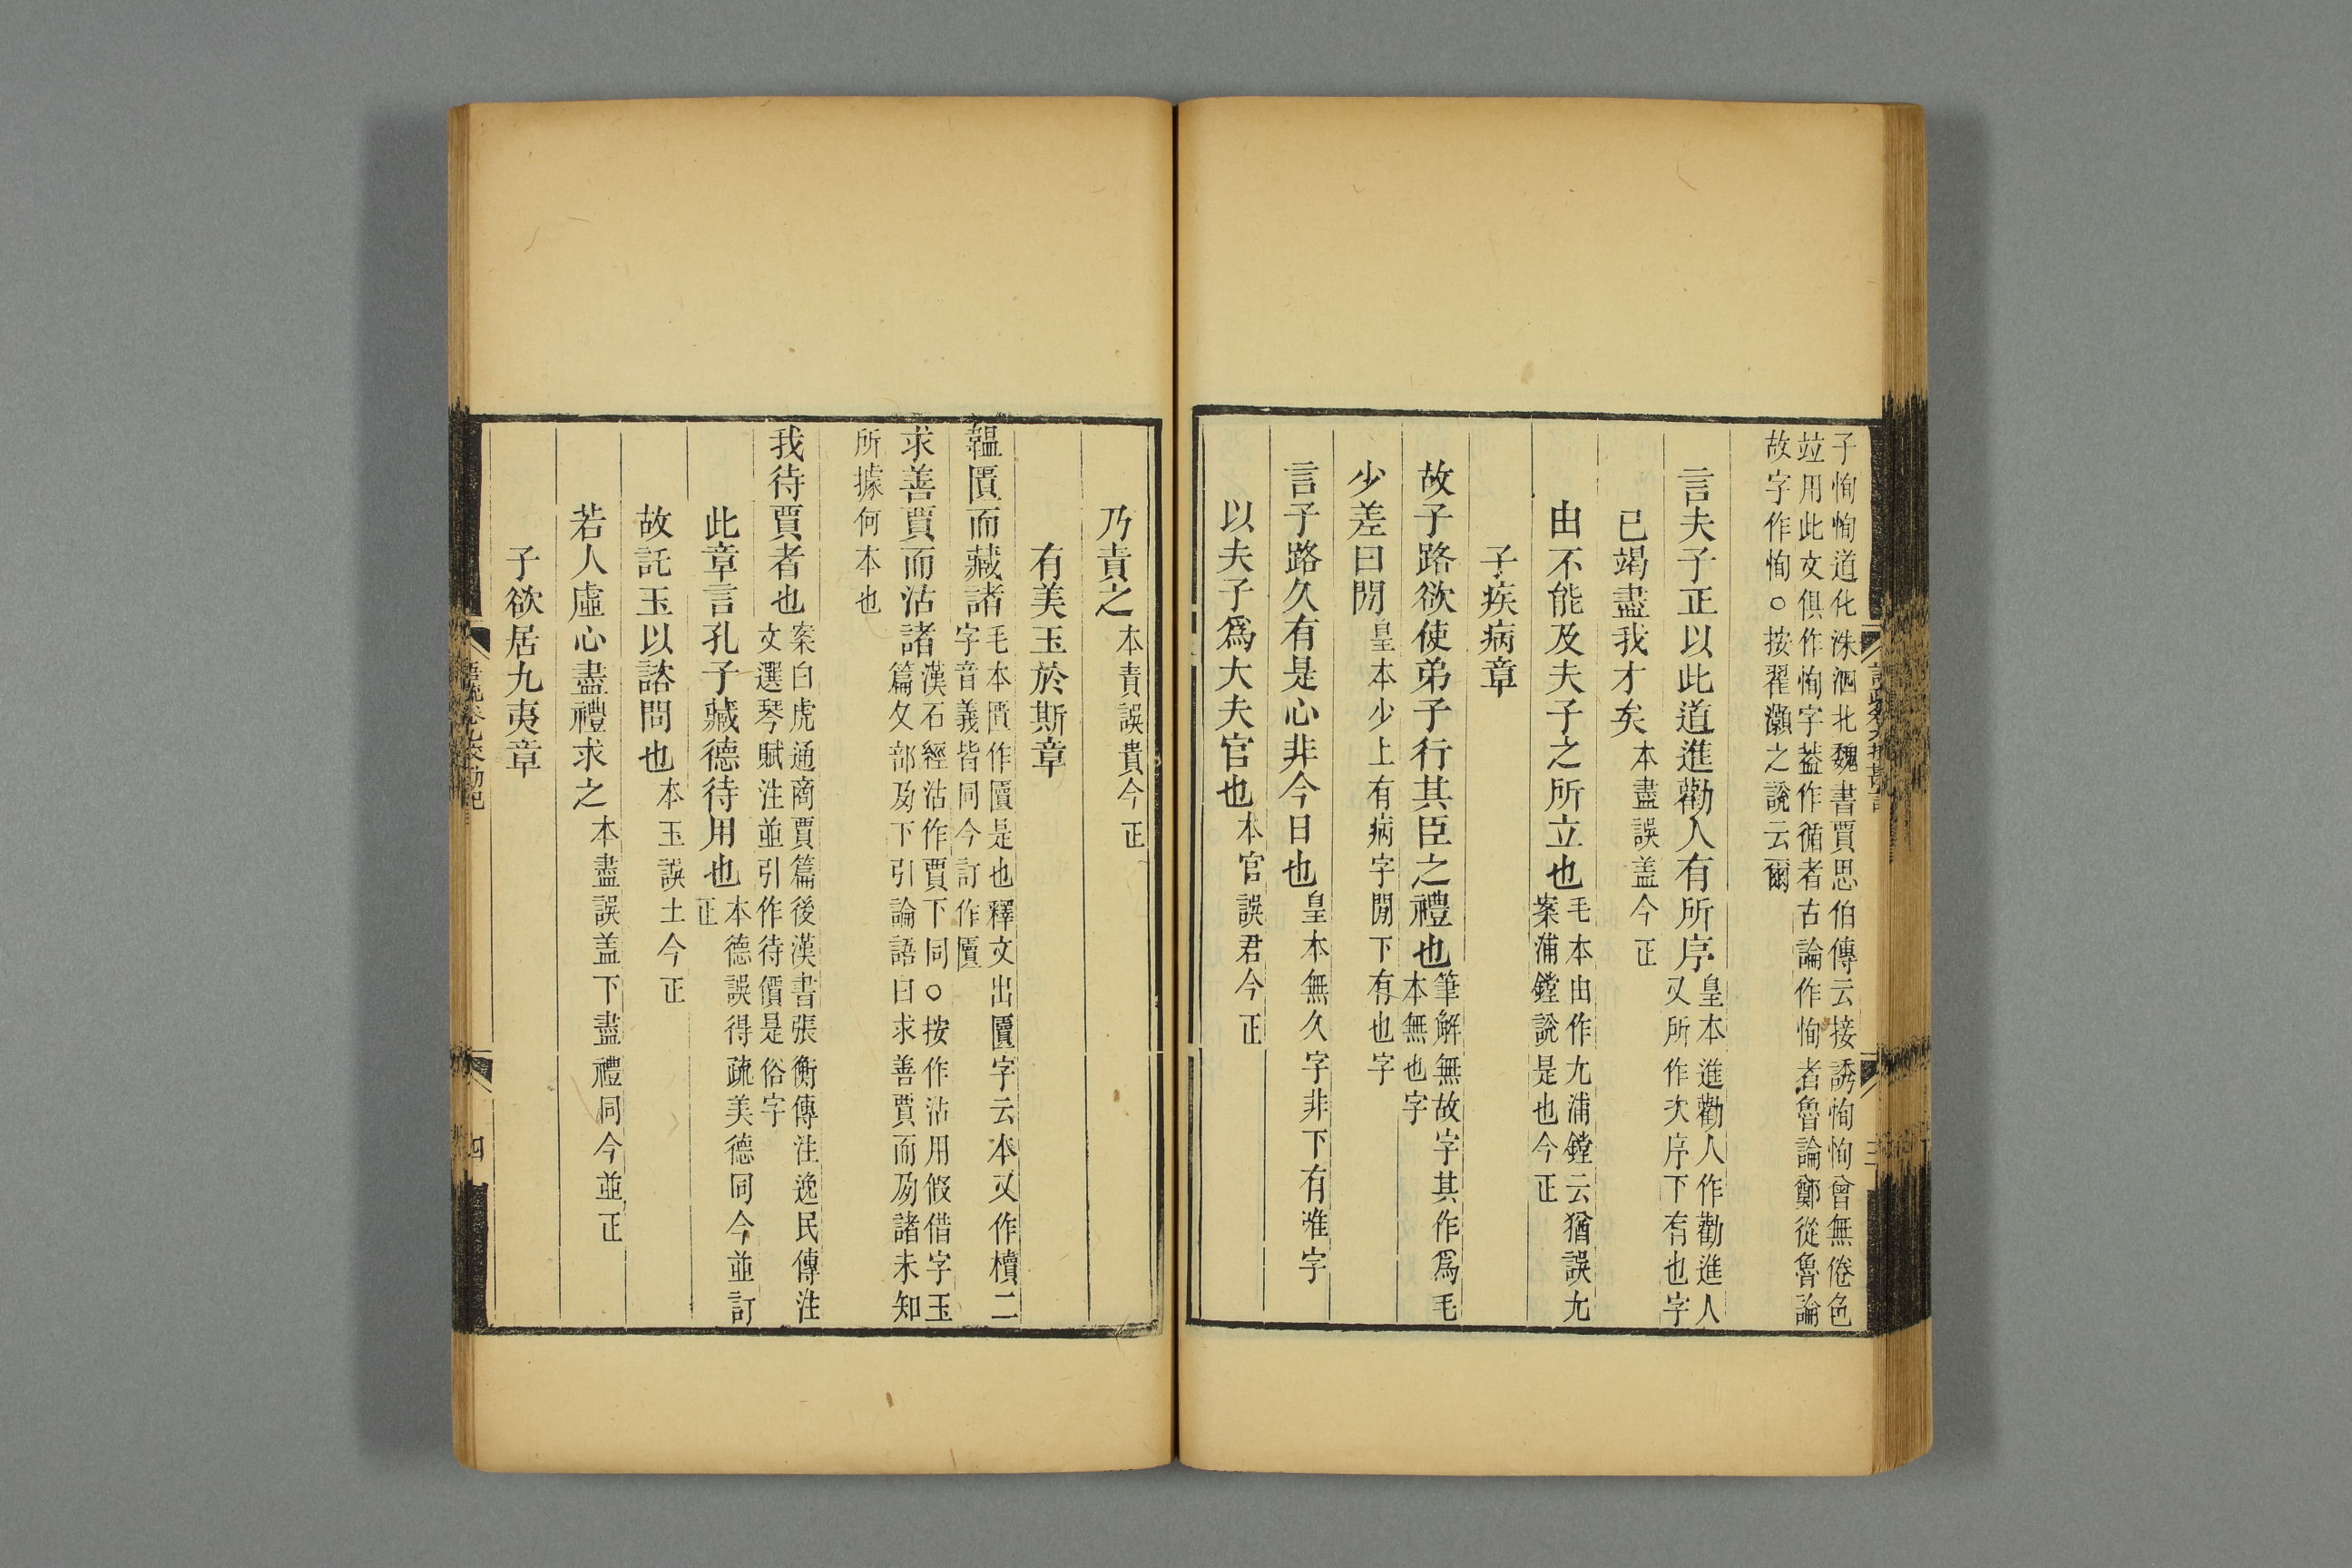 子恂恂道化洙泗北魏書賈思伯傳云接誘恂恂曾無倦色
竝用此文俱作恂字葢作循者古論作恂者魯論鄭從魯論
故字作恂○按翟灝之說云爾
言夫子正以此道進勸人有所序皇本進勸人作勸進人
又所作次序下有也字
已竭盡我才矣本盡誤盖今正
由不能及夫子之所立也毛本由作尢浦鏜云猶誤尢
案浦鏜說是也今正
子疾病章
故子路欲使弟子行其臣之禮也筆解無故字其作爲毛
本無也字
少差曰閒皇本少上有病字閒下有也字
言子路久有是心非今日也皇本無久字非下有唯字
以夫子爲大夫官也本官誤君今正
乃責之本責誤貴今正
有美玉於斯章
韞匵而藏諸毛本匵作匱是也釋文出匵字云本又作櫝二
字音義皆同今訂作匵
求善賈而沽諸漢石經沽作賈下同○按作沽用假借字玉
篇夂部夃下引論語曰求善賈而夃諸未知
所據何本也
我待賈者也案白虎通商賈篇後漢書張衡傳注逸民傳注
文選琴賦注並引作待價是俗字
此章言孔子藏德待用也本德誤得疏美德同今並訂
正
故託玉以諮問也本玉誤土今正
若人虛心盡禮求之本盡誤盖下盡禮同今並正
子欲居九夷章
四